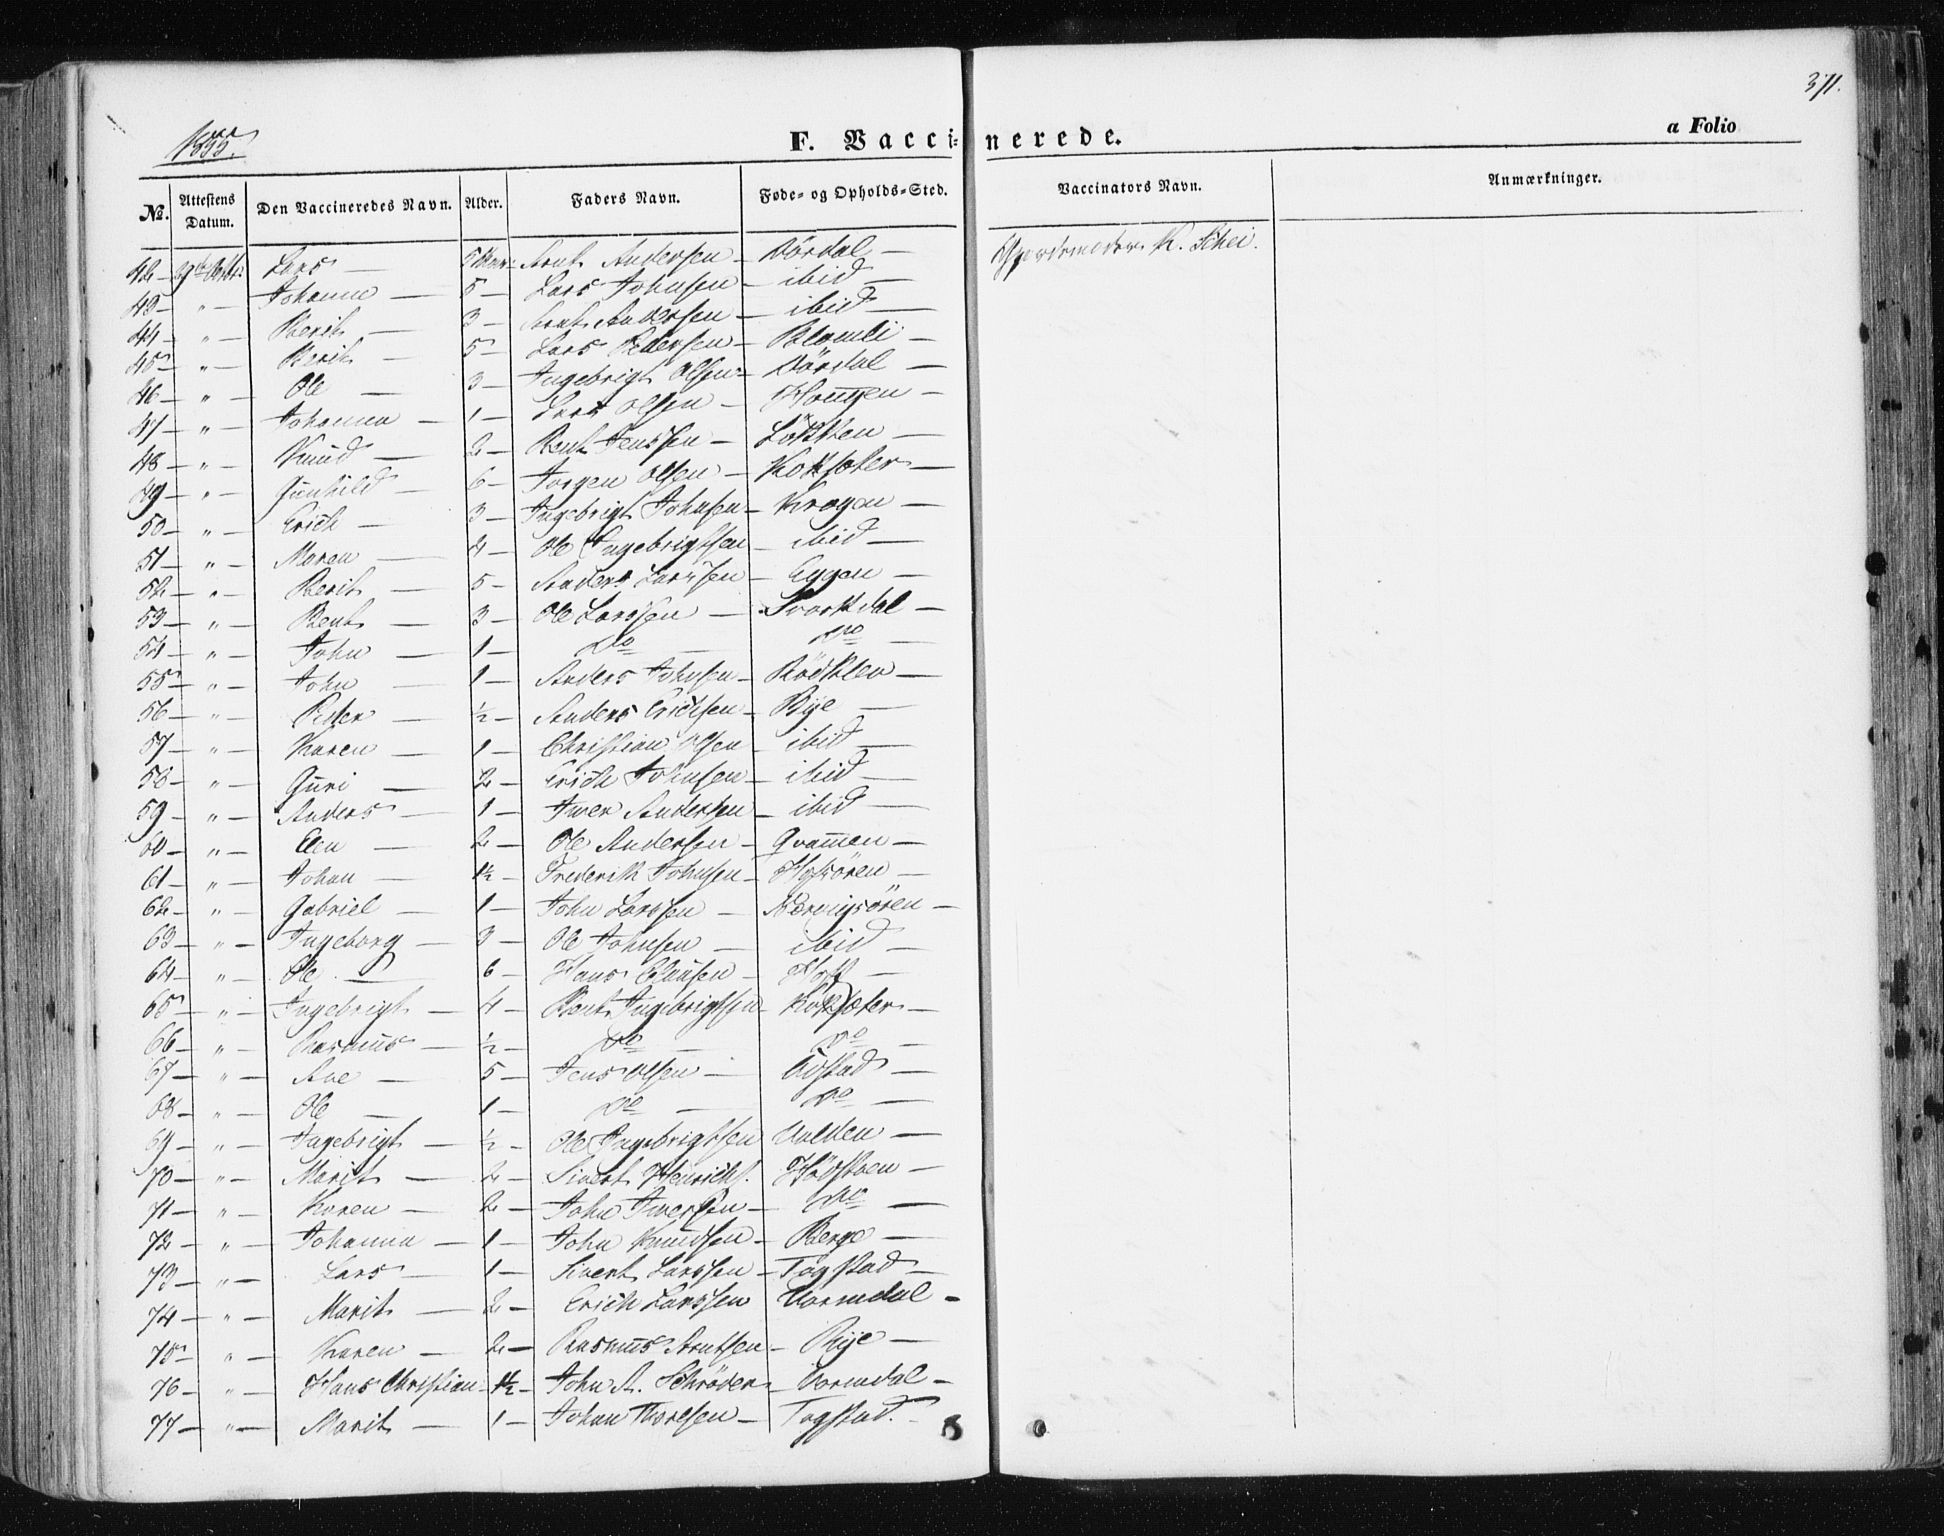 371.
1855.
F. Vaccinerede.
a Folio
No. Attestens Datum. Den Vaccineredes Navn. Alder. Faders Navn. Føde- og Opholds-Sted. Vaccinators Navn. Anmærkninger.
42 — Lars — Arnt Andersen — Dördal — K. Schei.
43 — " — Johanne — 5 — Lars Johnsen — ibid —
44 — " — Berit — 3 — Arnt Andersen — ibid —
45 — " — Berit — 5 — Lars Pedersen — Blomli —
46 — " — Ole — 3 — Ingebrigt Olsen — Dördal —
47 — " — Johanna — 1 — Lars Olsen — Hougen —
48 — " — Knud — 2 — Bent Jenssen — Lökken —
49 — " — Gunhild — 6 — Jörgen Olsen — Koksæter —
50 — " — Erich — 3 — Ingebrigt Johnsen — Krogen —
51 — " — Maren — 4 — Ole Ingebrigtsen — ibid —
52 — " — Berit — 5 — Anders Larssen — Eggen —
53 — " — Bent — 3 — Ole Larssen — Svorkdal —
54 — " — John — 1 — do — do —
55 — " — John — 1 — Anders Johnsen — Rödklev —
56 — " — Peder — ½ — Anders Erichsen — Rye —
57 — " — Karen — 1 — Christian Olsen — ibid —
58 — " — Guri — 2 — Erich Johnsen — ibid —
59 — " — Anders — 1 — Iver Andersen — ibid —
60 — " — Elen — 2 — Ole Andersen — Qvammen —
61 — " — Johan — 1½ — Frederik Johnsen — Hofsören —
62 — " — Gabriel — 1 — John Larssen —
63 — " — Ingeborg — 3 — Ole Johnsen — ibid —
64 — " — Ole — 6 — Hans Clausen — Hoff —
65 — " — Ingebrigt — 4 — Bent Ingebrigtsen — Koksæter —
66 — " — Rasmus — ½ — do — do —
67 — " — Ane — 5 — Jens Olsen — Aostad —
68 — " — Ole — 1 — do — do —
69 — " — Ingebrigt — ½ — Ole Ingebrigtsen
70 — " — Marit — 2 — Sivert Henrichs. —
71 — " — Karen — 2 — John Iversen — do —
72 — " — Johanna — 1 — John Knudsen — Berge —
73 — " — Lars — 1 — Sivert Larssen — Togstad —
74 — " — Marit — 2 — Erich Larssen Vormdal —
75 — " — Karen — 2 — Rasmus Arntsen — Rye —
76 — " — Hans Christian — 1½ — John A. Schröder — Vormdal —
77 — " — Marit — 1 — Johan Thorsen — Togstad. —